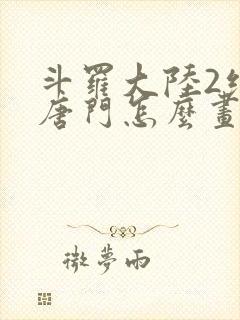 斗羅大陸2
唐門怎麼畫
微夢雨